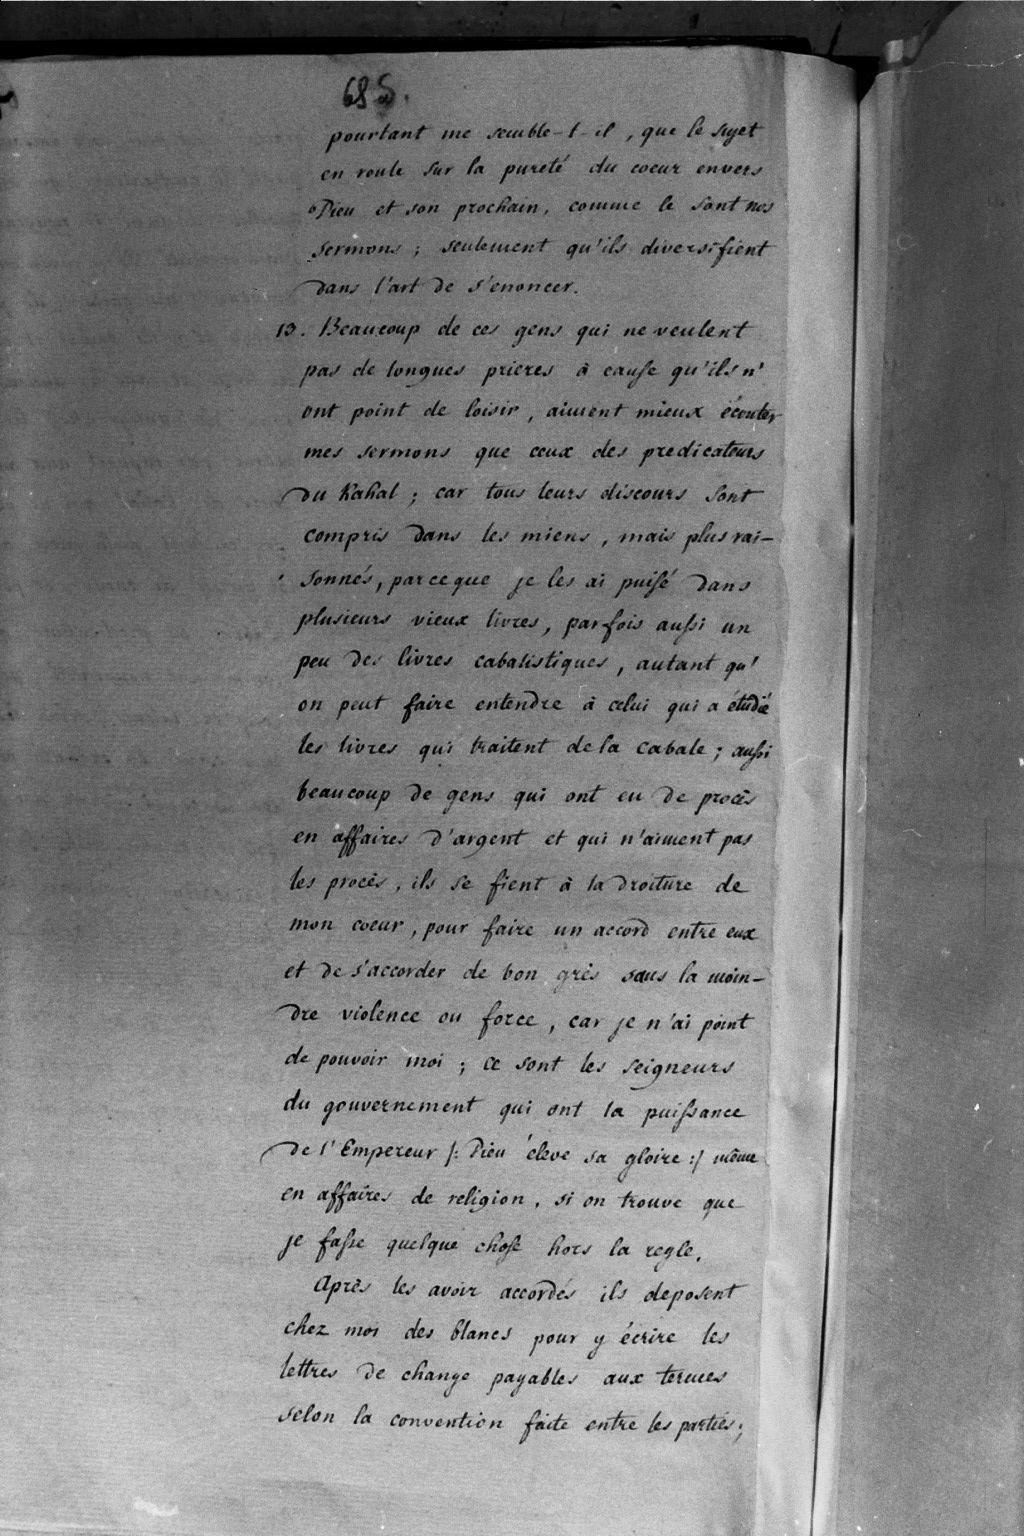 685.
pourtant me semble-t-il, que le sujet
en roule sur la pureté du coeur envers
Dieu et son prochain, comme le sont nos
sermons; seulement qu'ils diversifient
dans l'art de s'enoncer.
13. Beaucoup de ces gens qui ne veulent
pas de longues prieres à cause qu'ils n'
ont point de loisir, aiment mieux écouter
mes sermons que ceux des predicateurs
du Kahal; car tous leurs discours sont
compris dans les miens, mais plus rai-
sonnés, parceque je les ai puisé dans
plusieurs vieux livres, parfois aussi un
peu des livres cabalistiques, autant qu'
on peut faire entendre à celui qui a étudié
les livres qui traitent de la cabale; aussi
beaucoup de gens qui ont eu de procès
en affaires d'argent et qui n'aiment pas
les procès, ils se fient à la droiture de
mon coeur, pour faire un accord entre eux
et de s'accorder de bon grès sans la moin-
dre violence ou force, car je n'ai point
de pouvoir moi; ce sont les seigneurs
du gouvernement qui ont la puissance
de l'Empereur /: Dieu élève sa gloire :/ même
en affaires de religion, si on trouve que
je fasse quelque chose hors la regle.
Après les avoir accordés ils deposent
chez moi des blancs pour y écrire les
lettres de change payables aux termes
selon la convention faite entre les parties;